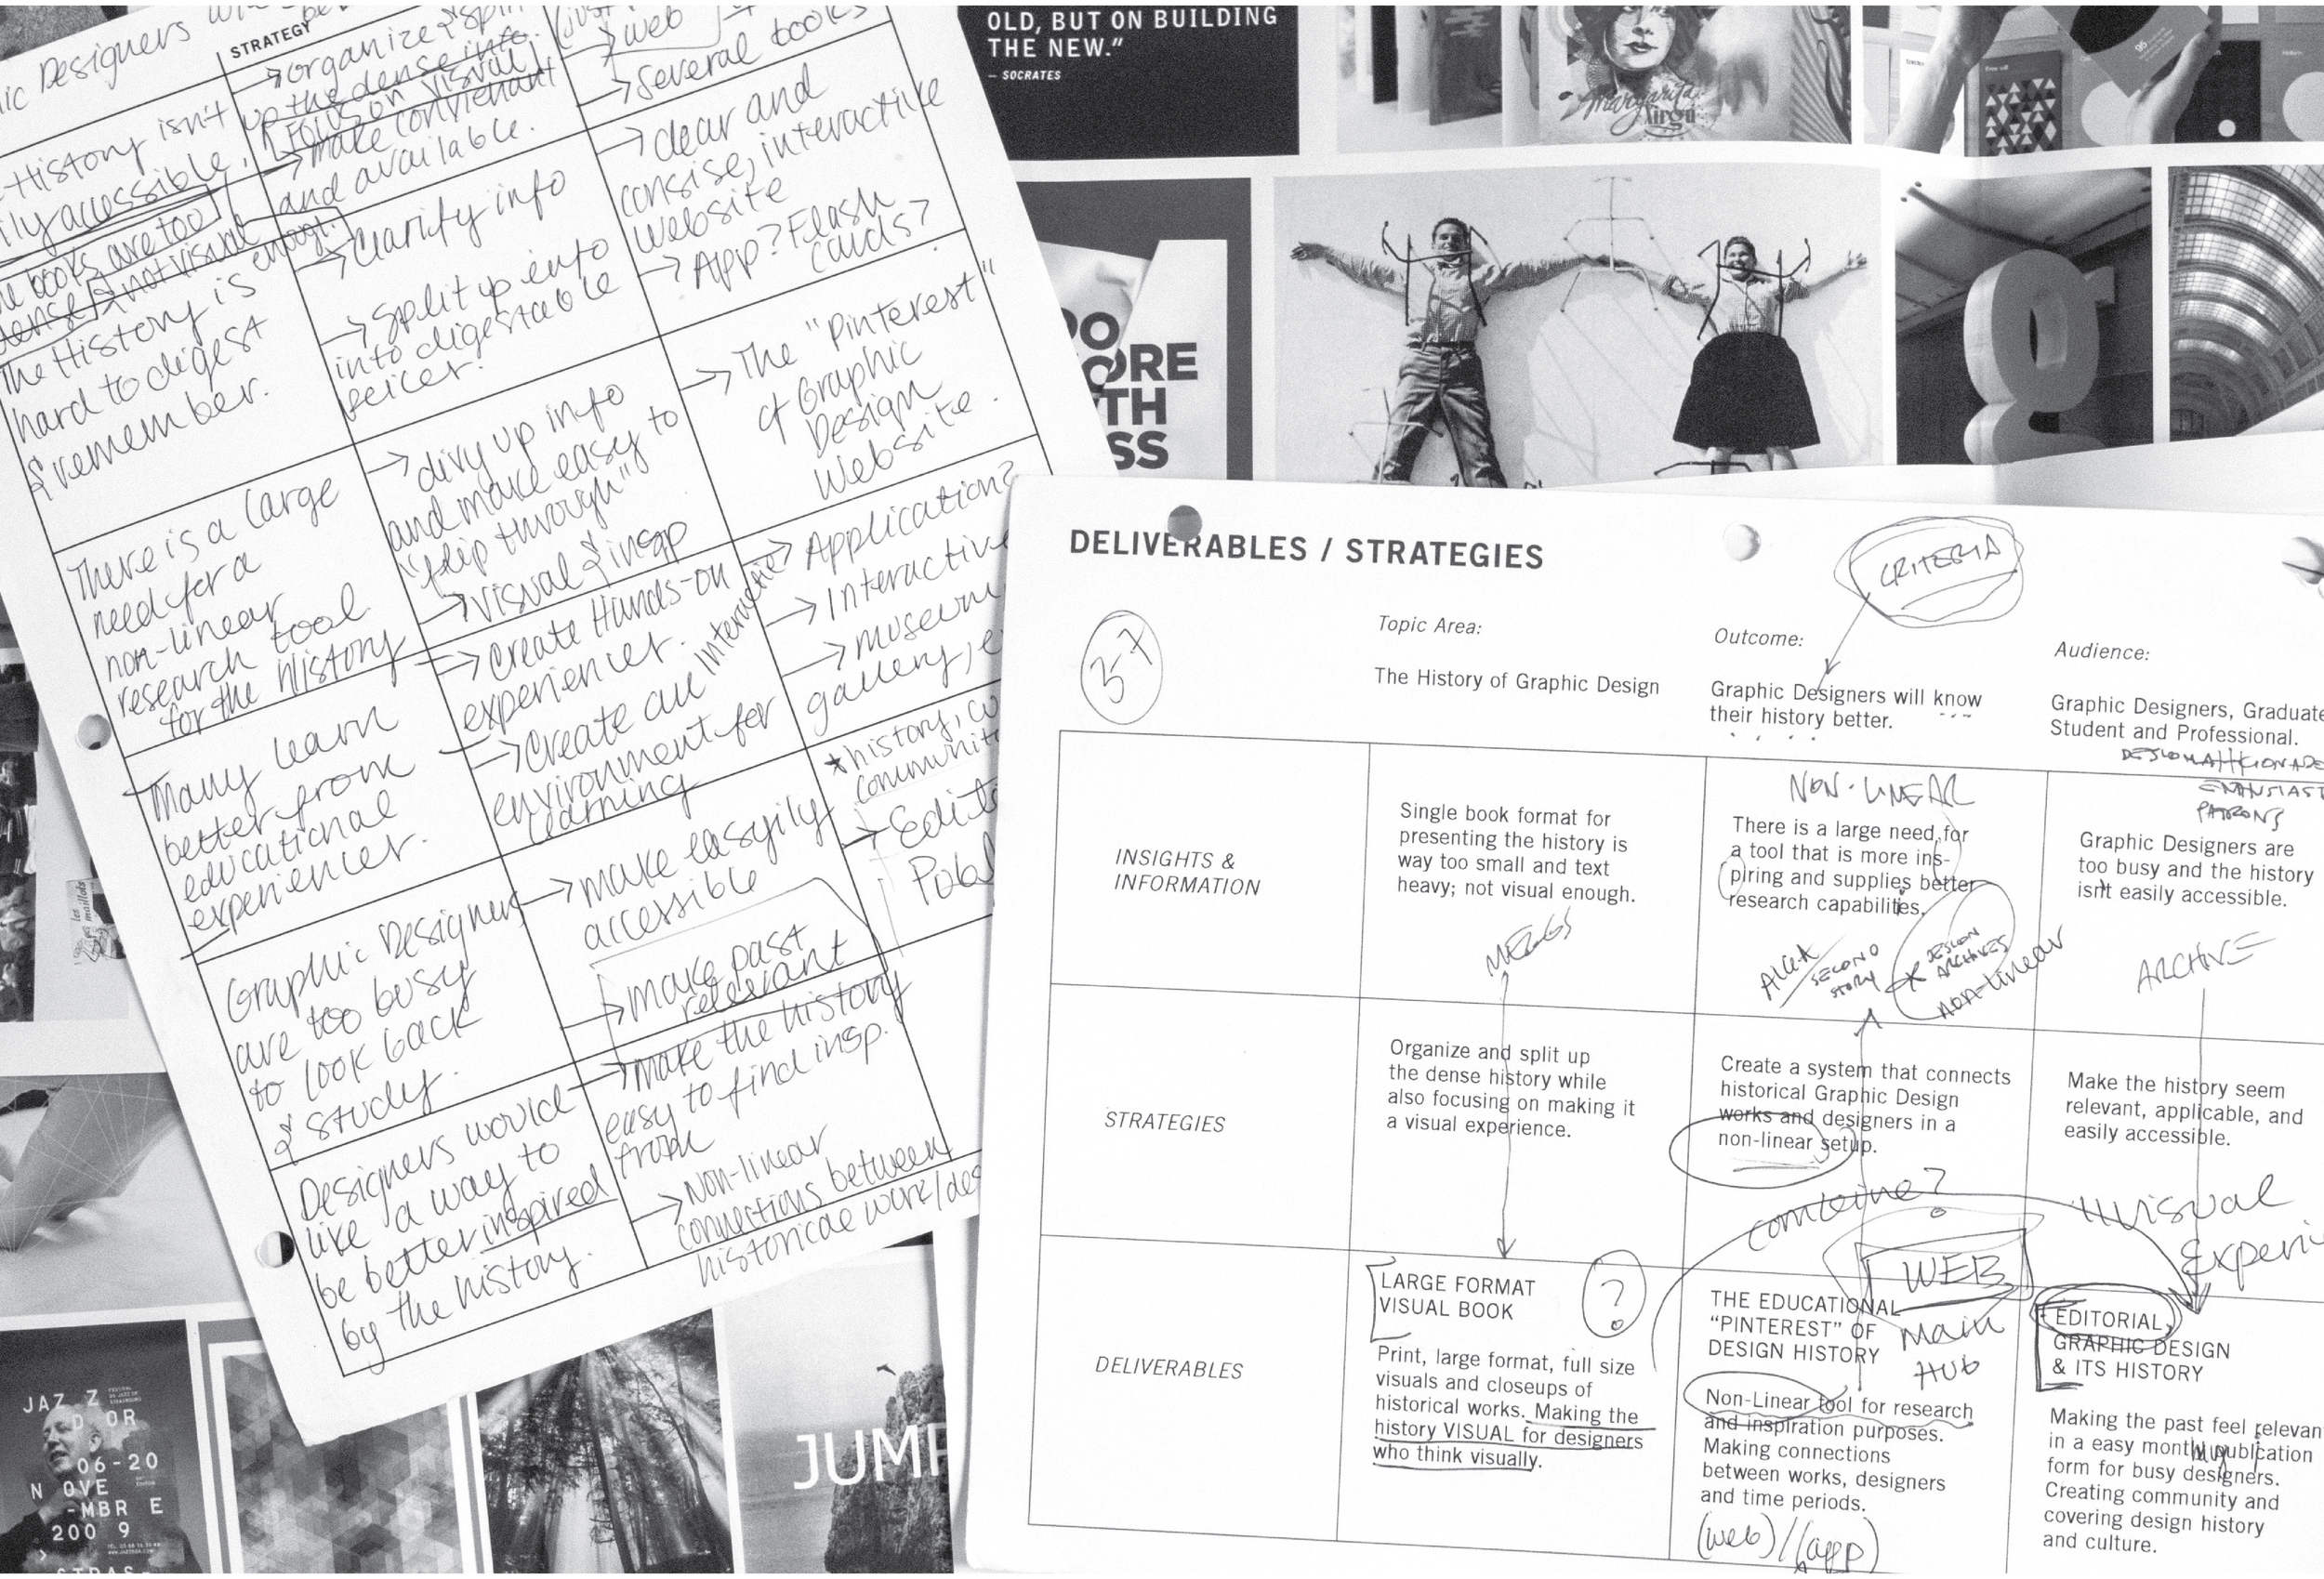 ic Designers
STRATEGY
→ organize & split
up the dense info.
Focus on visual
→ make convienant
and available.
→ web
→ Several books
History isn't
ily accessible,
books are too
dense & not visual enough!
The History is
hard to digest
& remember.
→ Clarify info
→ Split up into
into digestable
peices.
→ clear and
consise, interactive
website
→ App? Flash
cards?
There is a large
need for a
non-linear
research tool
for the history
→ divy up info
and make easy to
"flip through"
→ Visual & insp
→ The "Pinterest"
of Graphic
Design
Website.
Many learn
better from
educational
experiences.
→ Create Hands-on
experiences.
→ Create an Interactive
environment for
learning
→ Application?
→ Interactive
→ museum,
gallery, e
Graphic Designers
are too busy
to look back
& study.
→ make easyily
accessible
→ make past
relevant
★ history, co
communit
→ Edit
Publ
Designers would
like a way to
be better inspired
by the history.
→ make the history
easy to find insp.
from
→ Non-linear
connections between
historical work/des
OLD, BUT ON BUILDING
THE NEW."
– SOCRATES
Margarita
Xirgu
DO
ORE
TH
SS
g
les
maillots
JAZZ
D OR
06-20
N OVE
-MBR E
200 9
STRAS-
JUMP
DELIVERABLES / STRATEGIES
CRITERIA
3-7
Topic Area:
The History of Graphic Design
Outcome:
Graphic Designers will know
their history better.
Audience:
Graphic Designers, Graduate
Student and Professional.
ENTHUSIAST
PATRONS
INSIGHTS &
INFORMATION
Single book format for
presenting the history is
way too small and text
heavy; not visual enough.
MEGGS
NON-LINEAR
There is a large need for
a tool that is more ins-
piring and supplies better
research capabilities.
AIGA / SECOND
STORY
DESIGN
ARCHIVES
NON-LINEAR
Graphic Designers are
too busy and the history
isn't easily accessible.
ARCHIVE
STRATEGIES
Organize and split up
the dense history while
also focusing on making it
a visual experience.
Create a system that connects
historical Graphic Design
works and designers in a
non-linear setup.
Make the history seem
relevant, applicable, and
easily accessible.
combine?
visual
Experi
DELIVERABLES
LARGE FORMAT
VISUAL BOOK
?
Print, large format, full size
visuals and closeups of
historical works. Making the
history VISUAL for designers
who think visually.
WEB
Main
HUB
THE EDUCATIONAL
"PINTEREST" OF
DESIGN HISTORY
Non-Linear tool for research
and inspiration purposes.
Making connections
between works, designers
and time periods.
(web)/(app)
EDITORIAL
GRAPHIC DESIGN
& ITS HISTORY
Making the past feel relevan
in a easy monthly publication
form for busy designers.
Creating community and
covering design history
and culture.